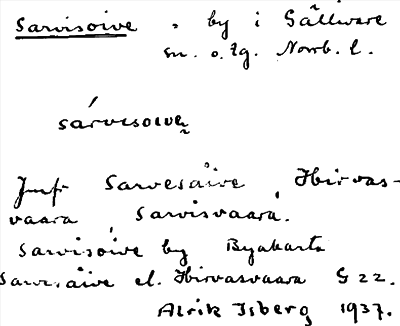 Sarvisoive, by i Gällivare
sn. o. tg. Norrb. l.
sárvesoivẹ
Jmfr Sarvesåive, Hirvas-
vaara, Sarvisvaara.
Sarvisoive by Byakarta
Sarvisåive el. Hirvasvaara G 22.
Alrik Isberg 1937.